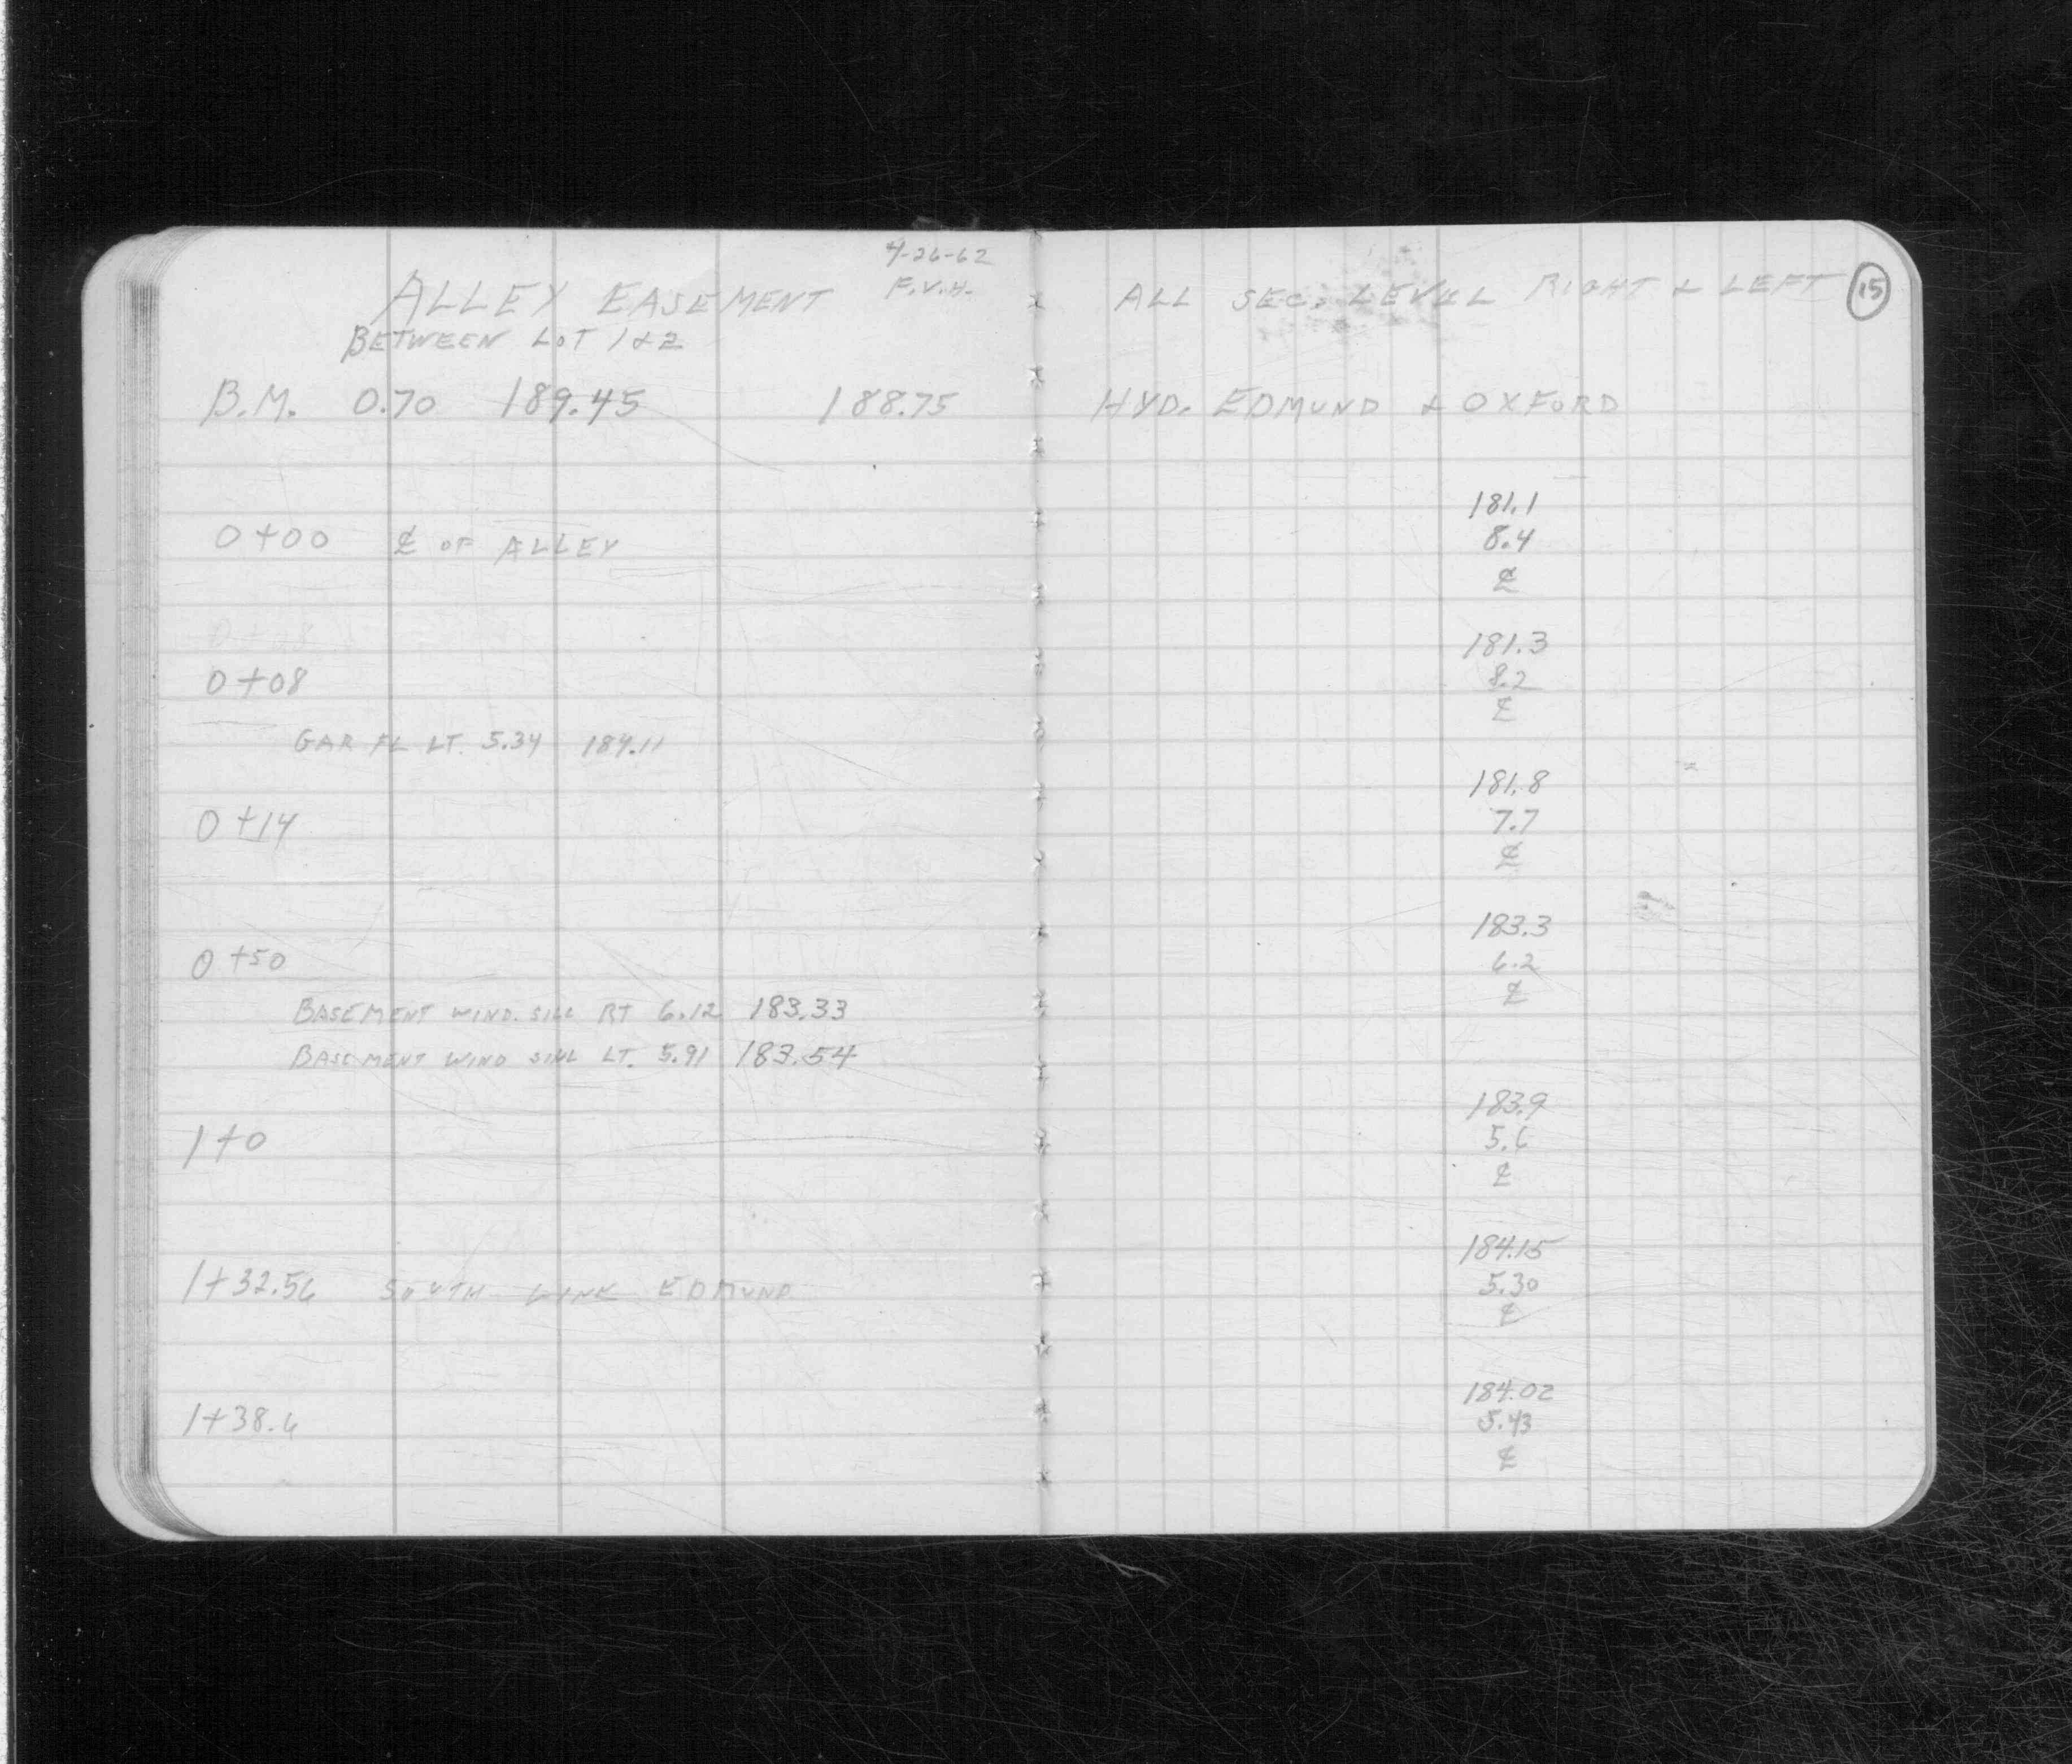 4-26-62
ALLEY EASEMENT F.V.H.
BETWEEN LOT 1 & 2
B.M. 0.70 189.45 188.75
0+00 ℄ OF ALLEY
0+08
0+08
GAR FL LT. 5.34 184.11
0+14
0+50
BASEMENT WIND. SILL RT 6.12 183.33
BASEMENT WIND SILL LT. 5.91 183.54
1+0
1+32.56 SOUTH LINE EDMUND
1+38.6
ALL SEC. LEVEL RIGHT & LEFT 15
HYD. EDMUND & OXFORD
181.1
8.4
℄
181.3
8.2
℄
181.8
7.7
℄
183.3
6.2
℄
183.9
5.6
℄
184.15
5.30
℄
184.02
5.43
℄